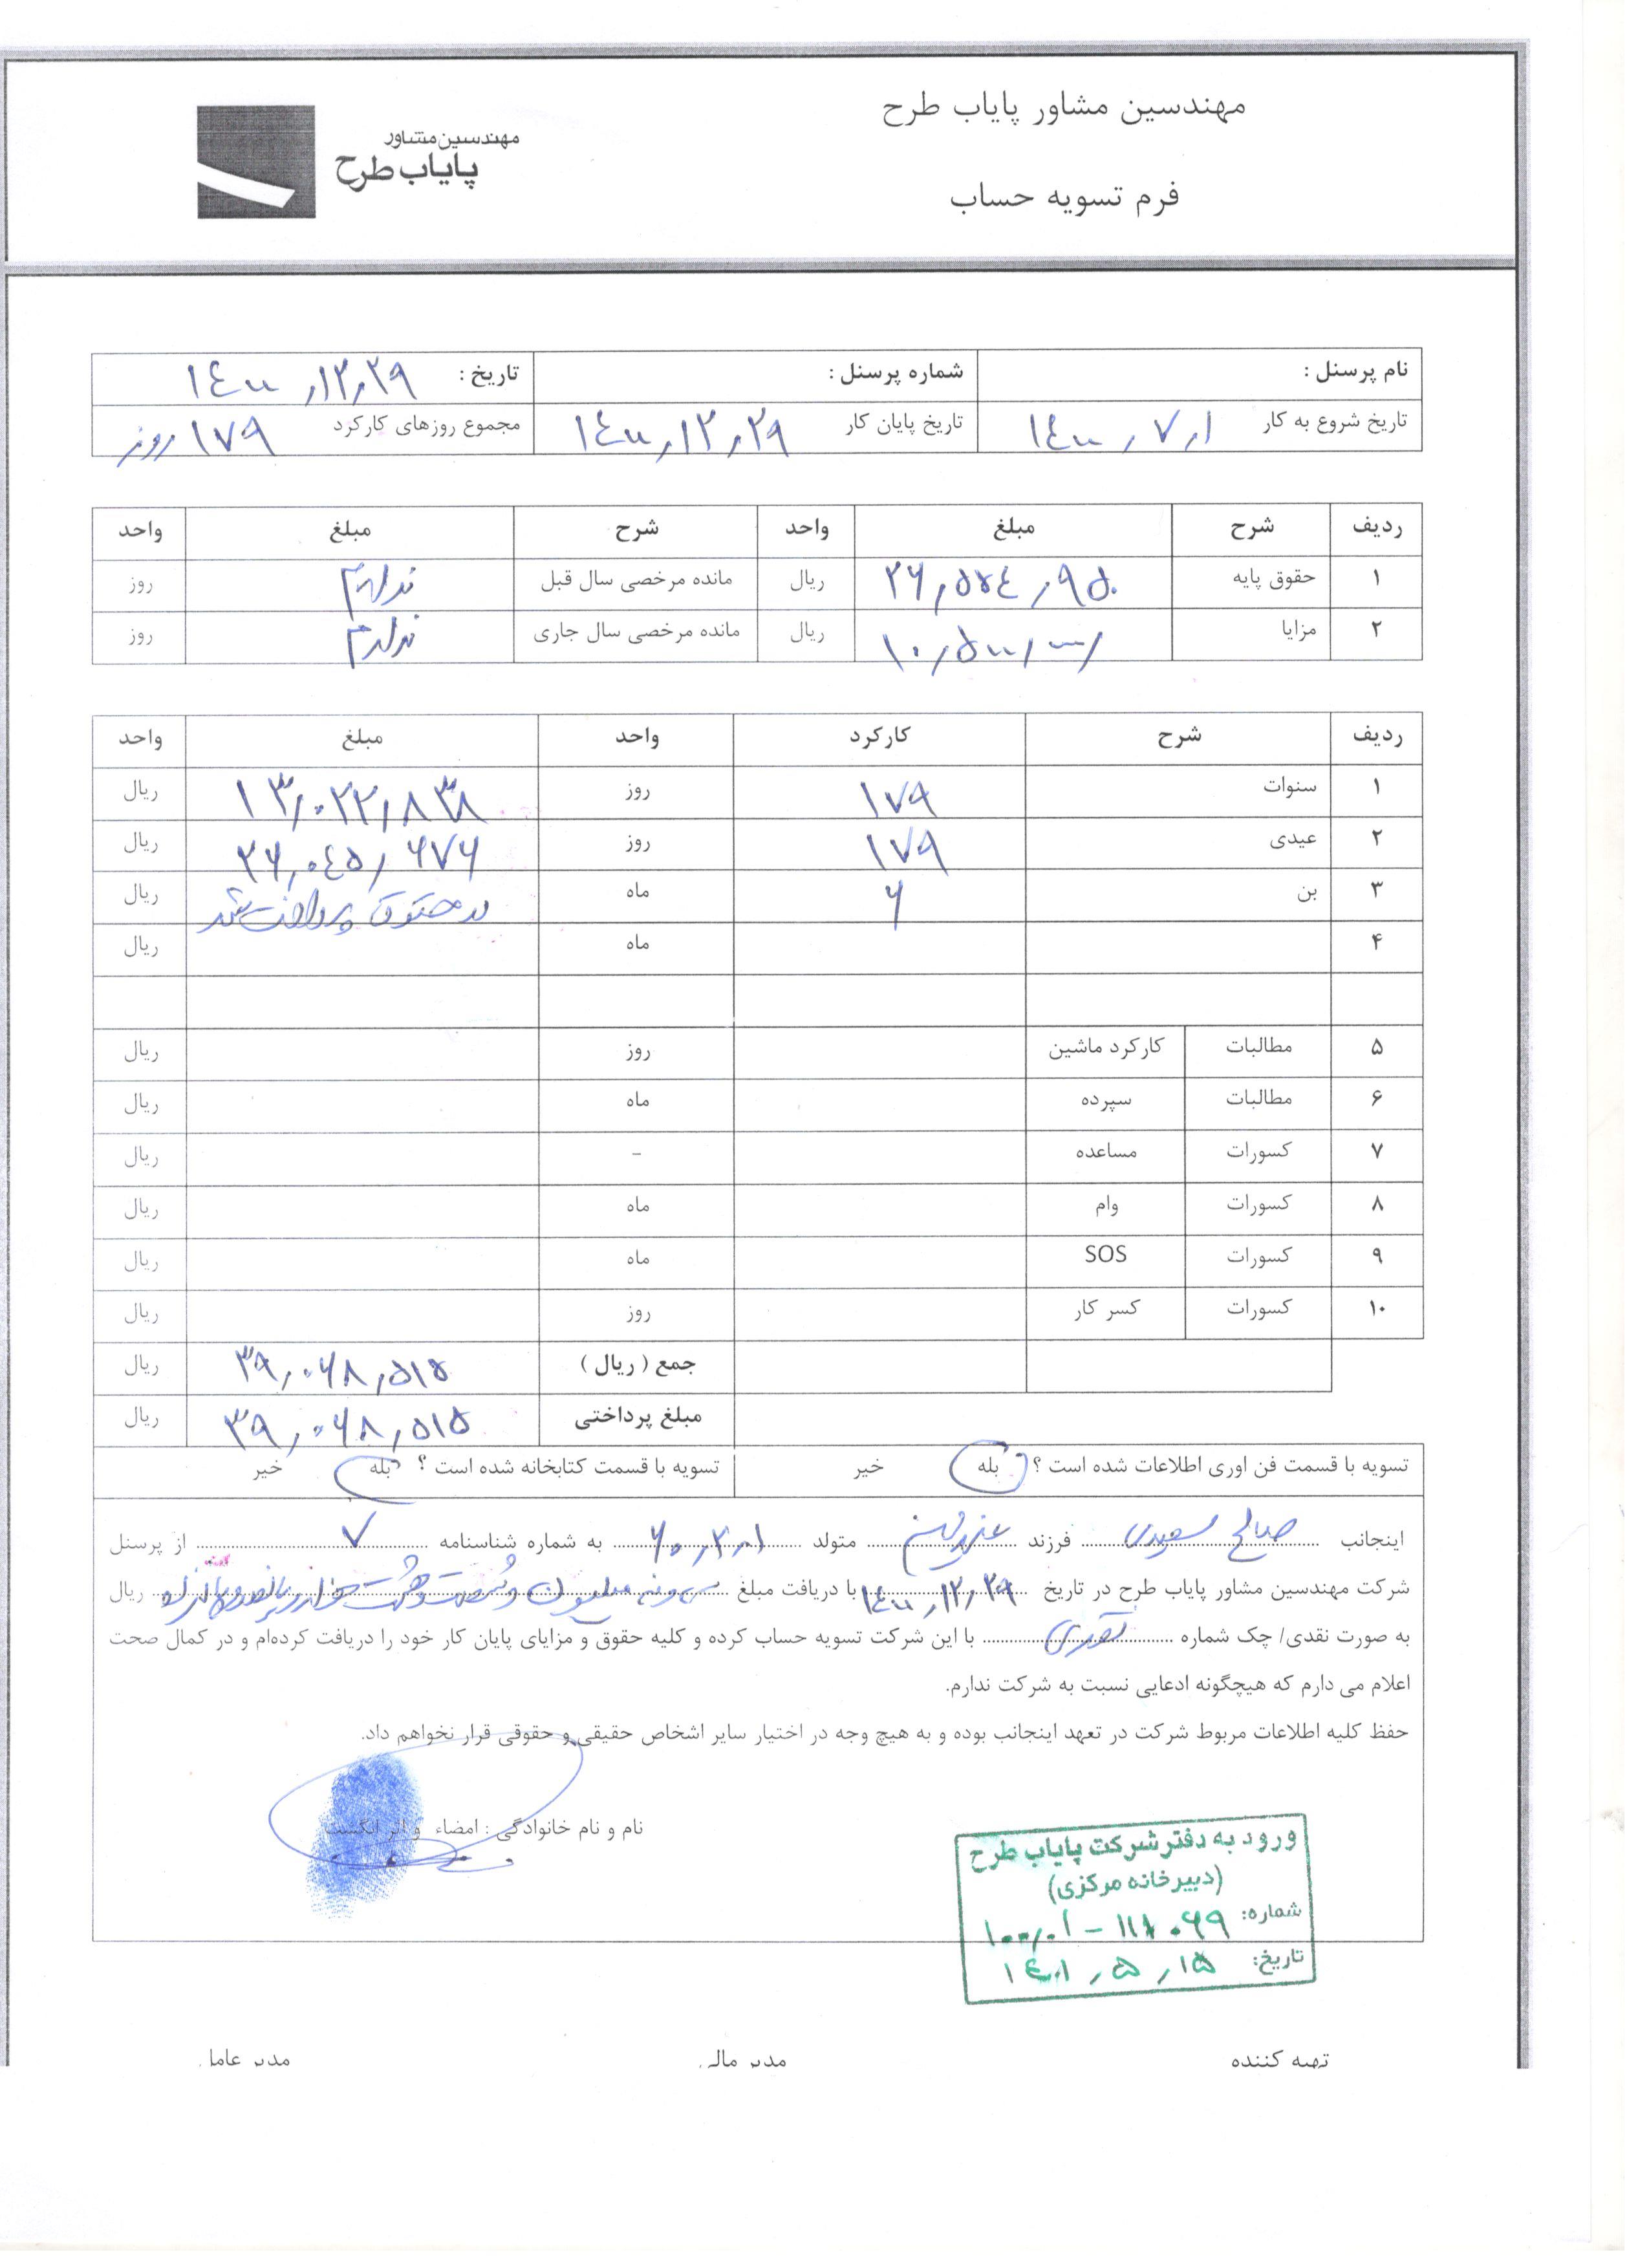 مهندسین مشاور پایاب طرح
مهندسین مشاور
پایاب طرح
فرم تسویه حساب
نام پرسنل : شماره پرسنل : تاریخ : ۱۴۰۰,۱۲,۲۹
تاریخ شروع به کار ۱۴۰۰,۷,۱ تاریخ پایان کار ۱۴۰۰,۱۲,۲۹ مجموع روزهای کارکرد ۱۷۹ روز
ردیف شرح مبلغ واحد شرح مبلغ واحد
۱ حقوق پایه ۲۶,۵۵۴,۹۵۰ ریال مانده مرخصی سال قبل ندارم روز
۲ مزایا ۱۰,۵۰۰,۰۰۰ ریال مانده مرخصی سال جاری ندارم روز
ردیف شرح کارکرد واحد مبلغ واحد
۱ سنوات ۱۷۹ روز ۱۳,۰۲۲,۸۳۸ ریال
۲ عیدی ۱۷۹ روز ۲۶,۰۴۵,۶۷۶ ریال
۳ بن ۶ ماه در حقوق پرداخت شد ریال
۴ ماه ریال
۵ مطالبات کارکرد ماشین روز ریال
۶ مطالبات سپرده ماه ریال
۷ کسورات مساعده - ریال
۸ کسورات وام ماه ریال
۹ کسورات SOS ماه ریال
۱۰ کسورات کسر کار روز ریال
جمع ( ریال ) ۳۹,۰۶۸,۵۱۵ ریال
مبلغ پرداختی ۳۹,۰۶۸,۵۱۵ ریال
تسویه با قسمت فن اوری اطلاعات شده است ؟ بله خیر تسویه با قسمت کتابخانه شده است ؟ بله خیر
اینجانب صالح سعیدی فرزند متولد ۶۰,۲,۰۱ به شماره شناسنامه ۷ از پرسنل
شرکت مهندسین مشاور پایاب طرح در تاریخ ۱۴۰۰,۱۲,۲۹ با دریافت مبلغ سی و نه میلیون و شصت و هشت هزار و پانصد و پانزده ریال
به صورت نقدی/ چک شماره نقدی با این شرکت تسویه حساب کرده و کلیه حقوق و مزایای پایان کار خود را دریافت کرده‌ام و در کمال صحت
اعلام می دارم که هیچگونه ادعایی نسبت به شرکت ندارم.
حفظ کلیه اطلاعات مربوط شرکت در تعهد اینجانب بوده و به هیچ وجه در اختیار سایر اشخاص حقیقی و حقوقی قرار نخواهم داد.
نام و نام خانوادگی : امضاء و اثر انگشت
ورود به دفتر شرکت پایاب طرح
(دبیرخانه مرکزی)
شماره: ۱۰۰,۰۱ - ۱۱۸۰۶۹
تاریخ: ۱۴۰۱,۵,۱۵
تهیه کننده مدیر مالی مدیر عامل